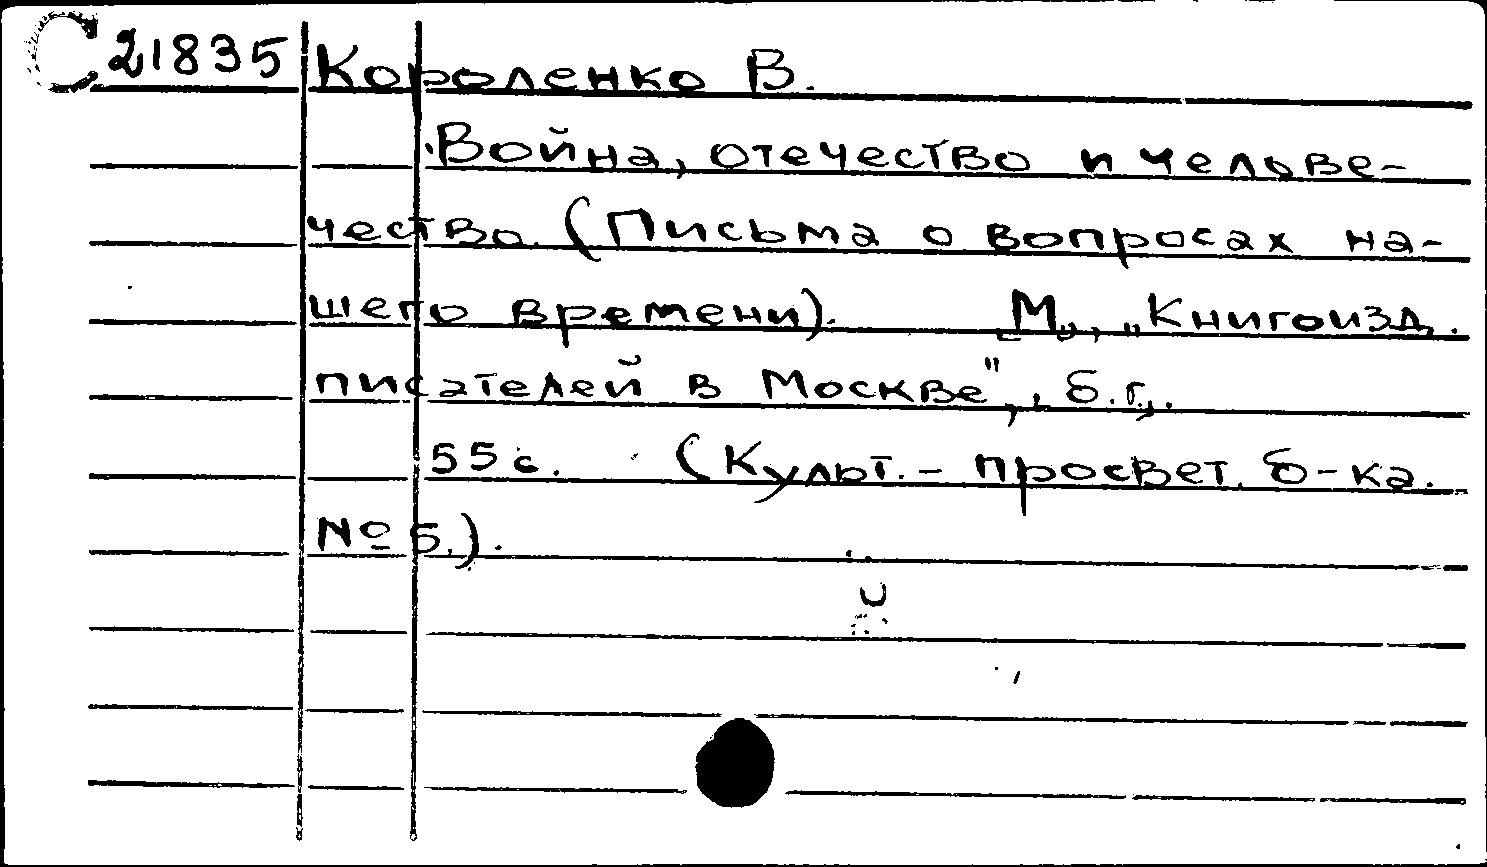 С 21835 Короленко В.
Война, отечество и челове-
чество. (Письма о вопросах на-
шего времени). М., „Книгоизд.
писателей в Москве", б.г.,.
55 с. (Культ.-просвет. б-ка.
№ 5.).